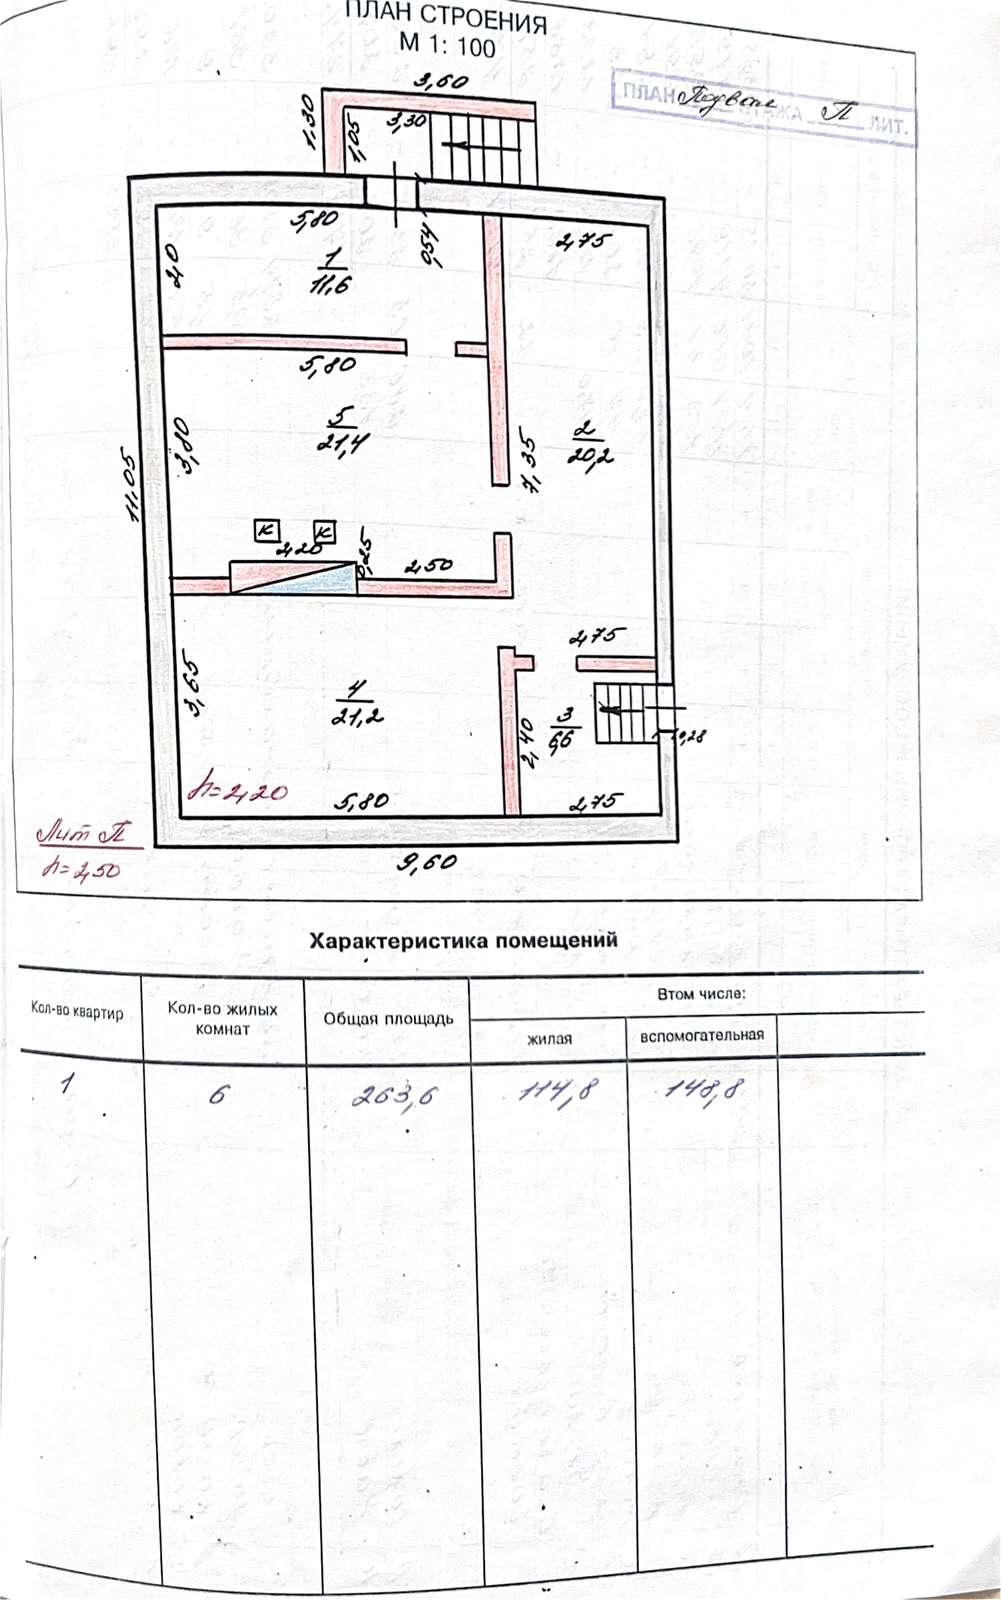 ПЛАН СТРОЕНИЯ
М 1: 100
ПЛАН Подвала ЭТАЖА П ЛИТ.
3,60
1.30
1,05
3,30
5,80
0,54
2,75
2,0
1
11,6
5,80
5
21,4
3,80
2
20,2
7,35
11.05
К К
2,20
0,25
2,50
2,75
3,65
4
21,2
3
6,6
2,40
0,28
h=2,20
5,80
2,75
Лит П
h=2,50
9,60
Характеристика помещений
Кол-во квартир
Кол-во жилых
комнат
Общая площадь
Втом числе:
жилая
вспомогательная
1
6
263,6
114,8
148,8